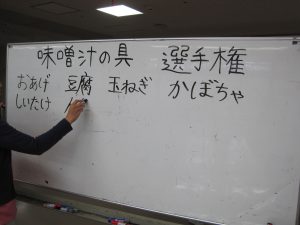 味噌汁の具 選手権
おあげ 豆腐 玉ねぎ かぼちゃ
しいたけ